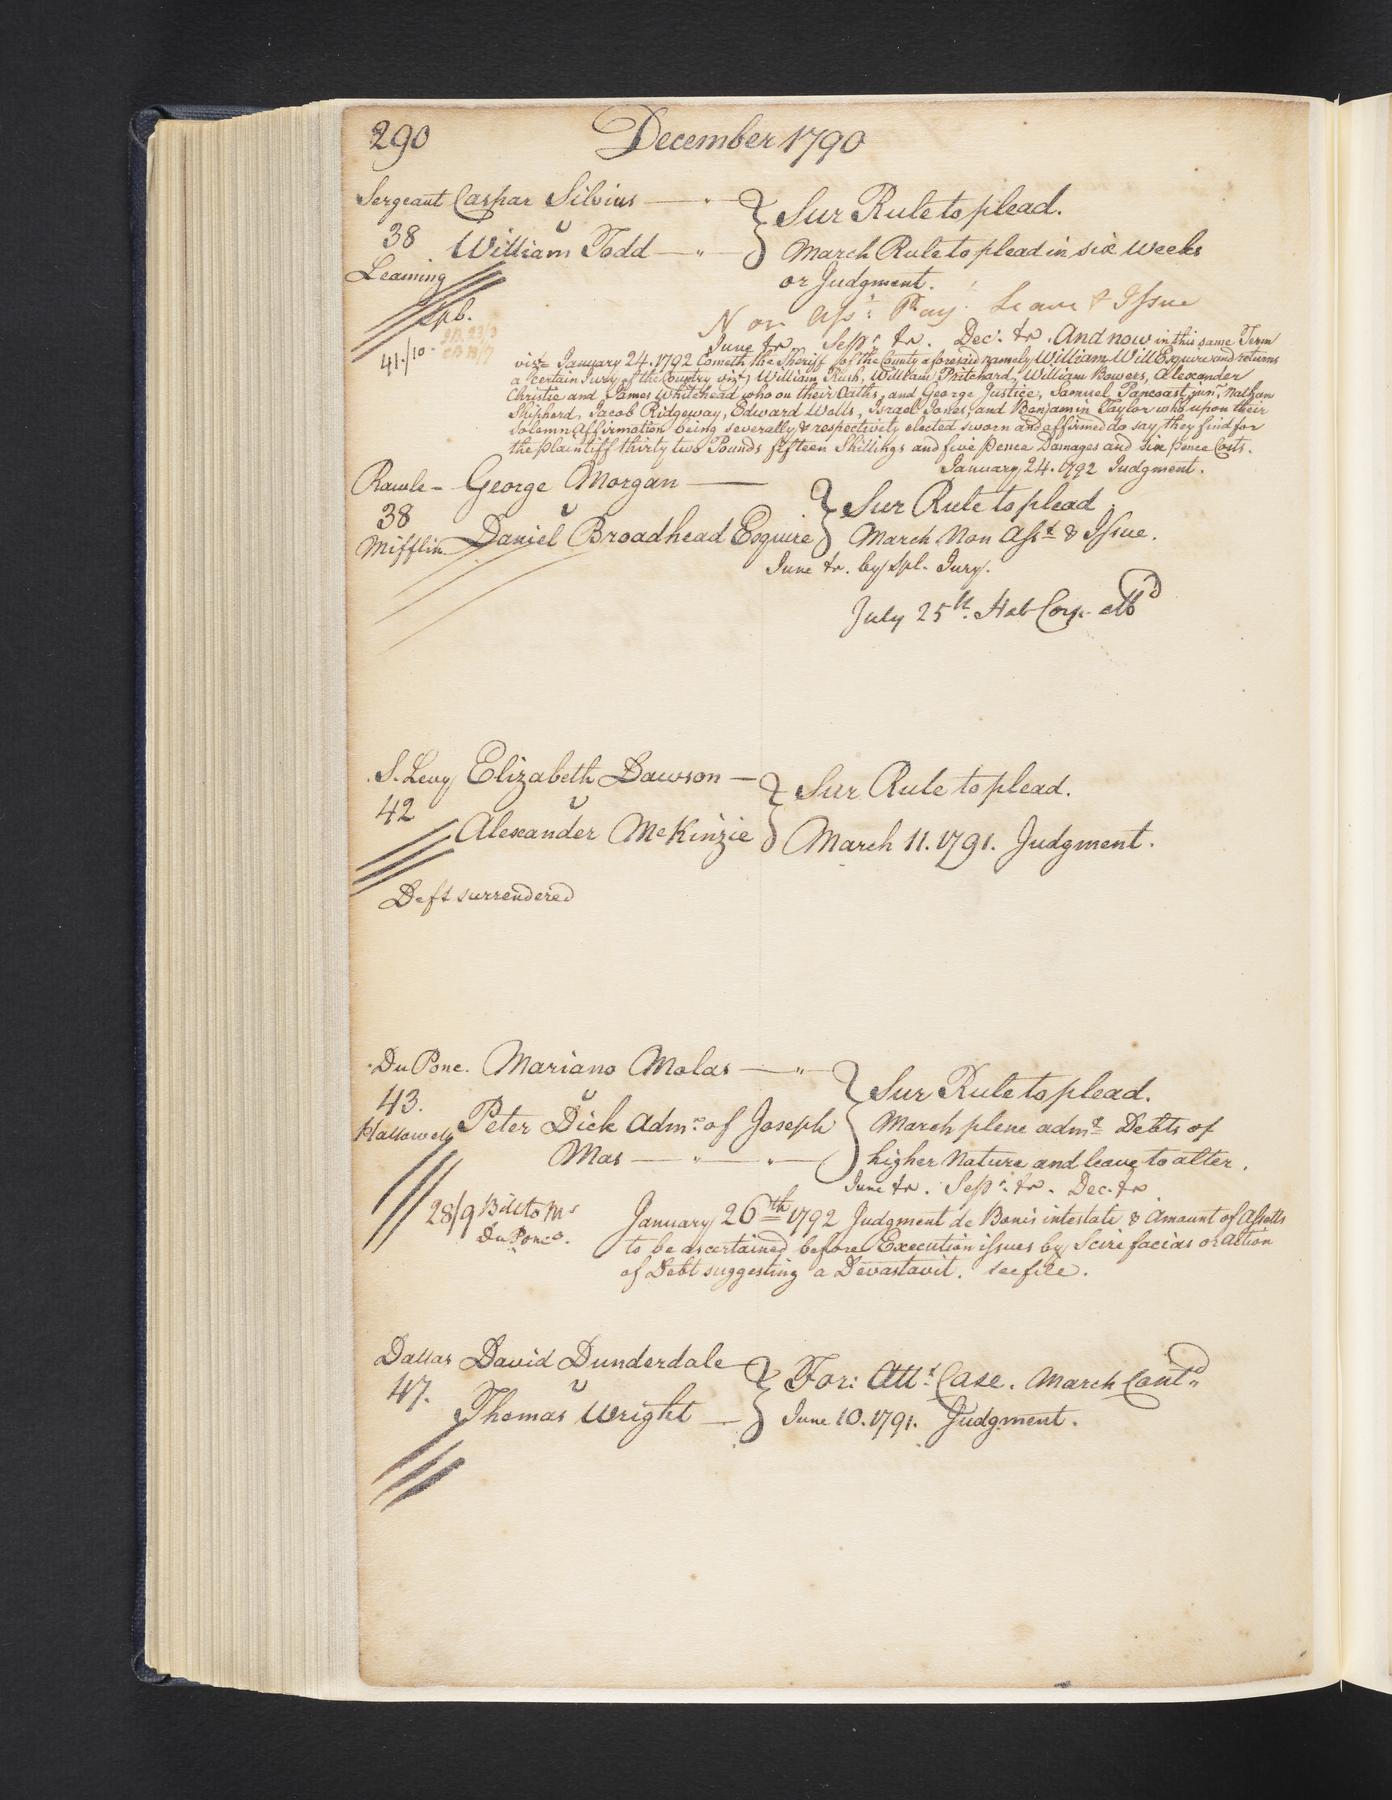 290 December 1790
Sergeant Caspar Silvius — " — } Sur Rule to plead.
38 v
William Todd — " — March Rule to plead in six weeks
Leaming or Judgment.
Spb. Non Asst. Pay. Leave & Issue
41./10. June tr. Sepr. tr. Dec. tr. And now in this same Term
vizt. January 24. 1792 Cometh the Sheriff of the County aforesaid namely William Will Esquire and returns
a certain Jury of the Country vizt. William Rush, William Pritchard, William Bowers, Alexander
Christie and James Whitehead who on their Oaths, and George Justice, Samuel Pancoast junr. Nathan
Shipherd, Jacob Ridgeway, Edward Wells, Israel Jones, and Benjamin Taylor who upon their
solemn Affirmation being severally & respectively elected sworn and affirmed do say they find for
the plaintiff thirty two Pounds fifteen Shillings and five pence Damages and six pence Costs.
January 24. 1792 Judgment.
Rawle — George Morgan — } Sur Rule to plead.
38 v
Mifflin Daniel Broadhead Esquire March Non Asst. & Issue.
June tr. by Spl. Jury.
July 25th. Hab Corp. alld
S. Levy Elizabeth Dawson — } Sur Rule to plead.
42 v
Alexander McKinzie March 11. 1791. Judgment.
Deft surrendered
DuPonc. Mariano Molas — " — } Sur Rule to plead.
43. v
Hallowell Peter Dick Admr. of Joseph March plene admt. Debts of
Mas — " — " — higher Nature and leave to alter.
June tr. Sepr. tr. Dec. tr.
28/9 Bill to Mr January 26th 1792 Judgment de Bonis intestati & Amount of Assetts
DuPonc. to be ascertained before Execution issues by Scire facias or action
of Debt suggesting a Devastavit. see file.
Dallas David Dunderdale } For: Att. Case. March Contd.
47. v
Thomas Wright — June 10. 1791. Judgment.